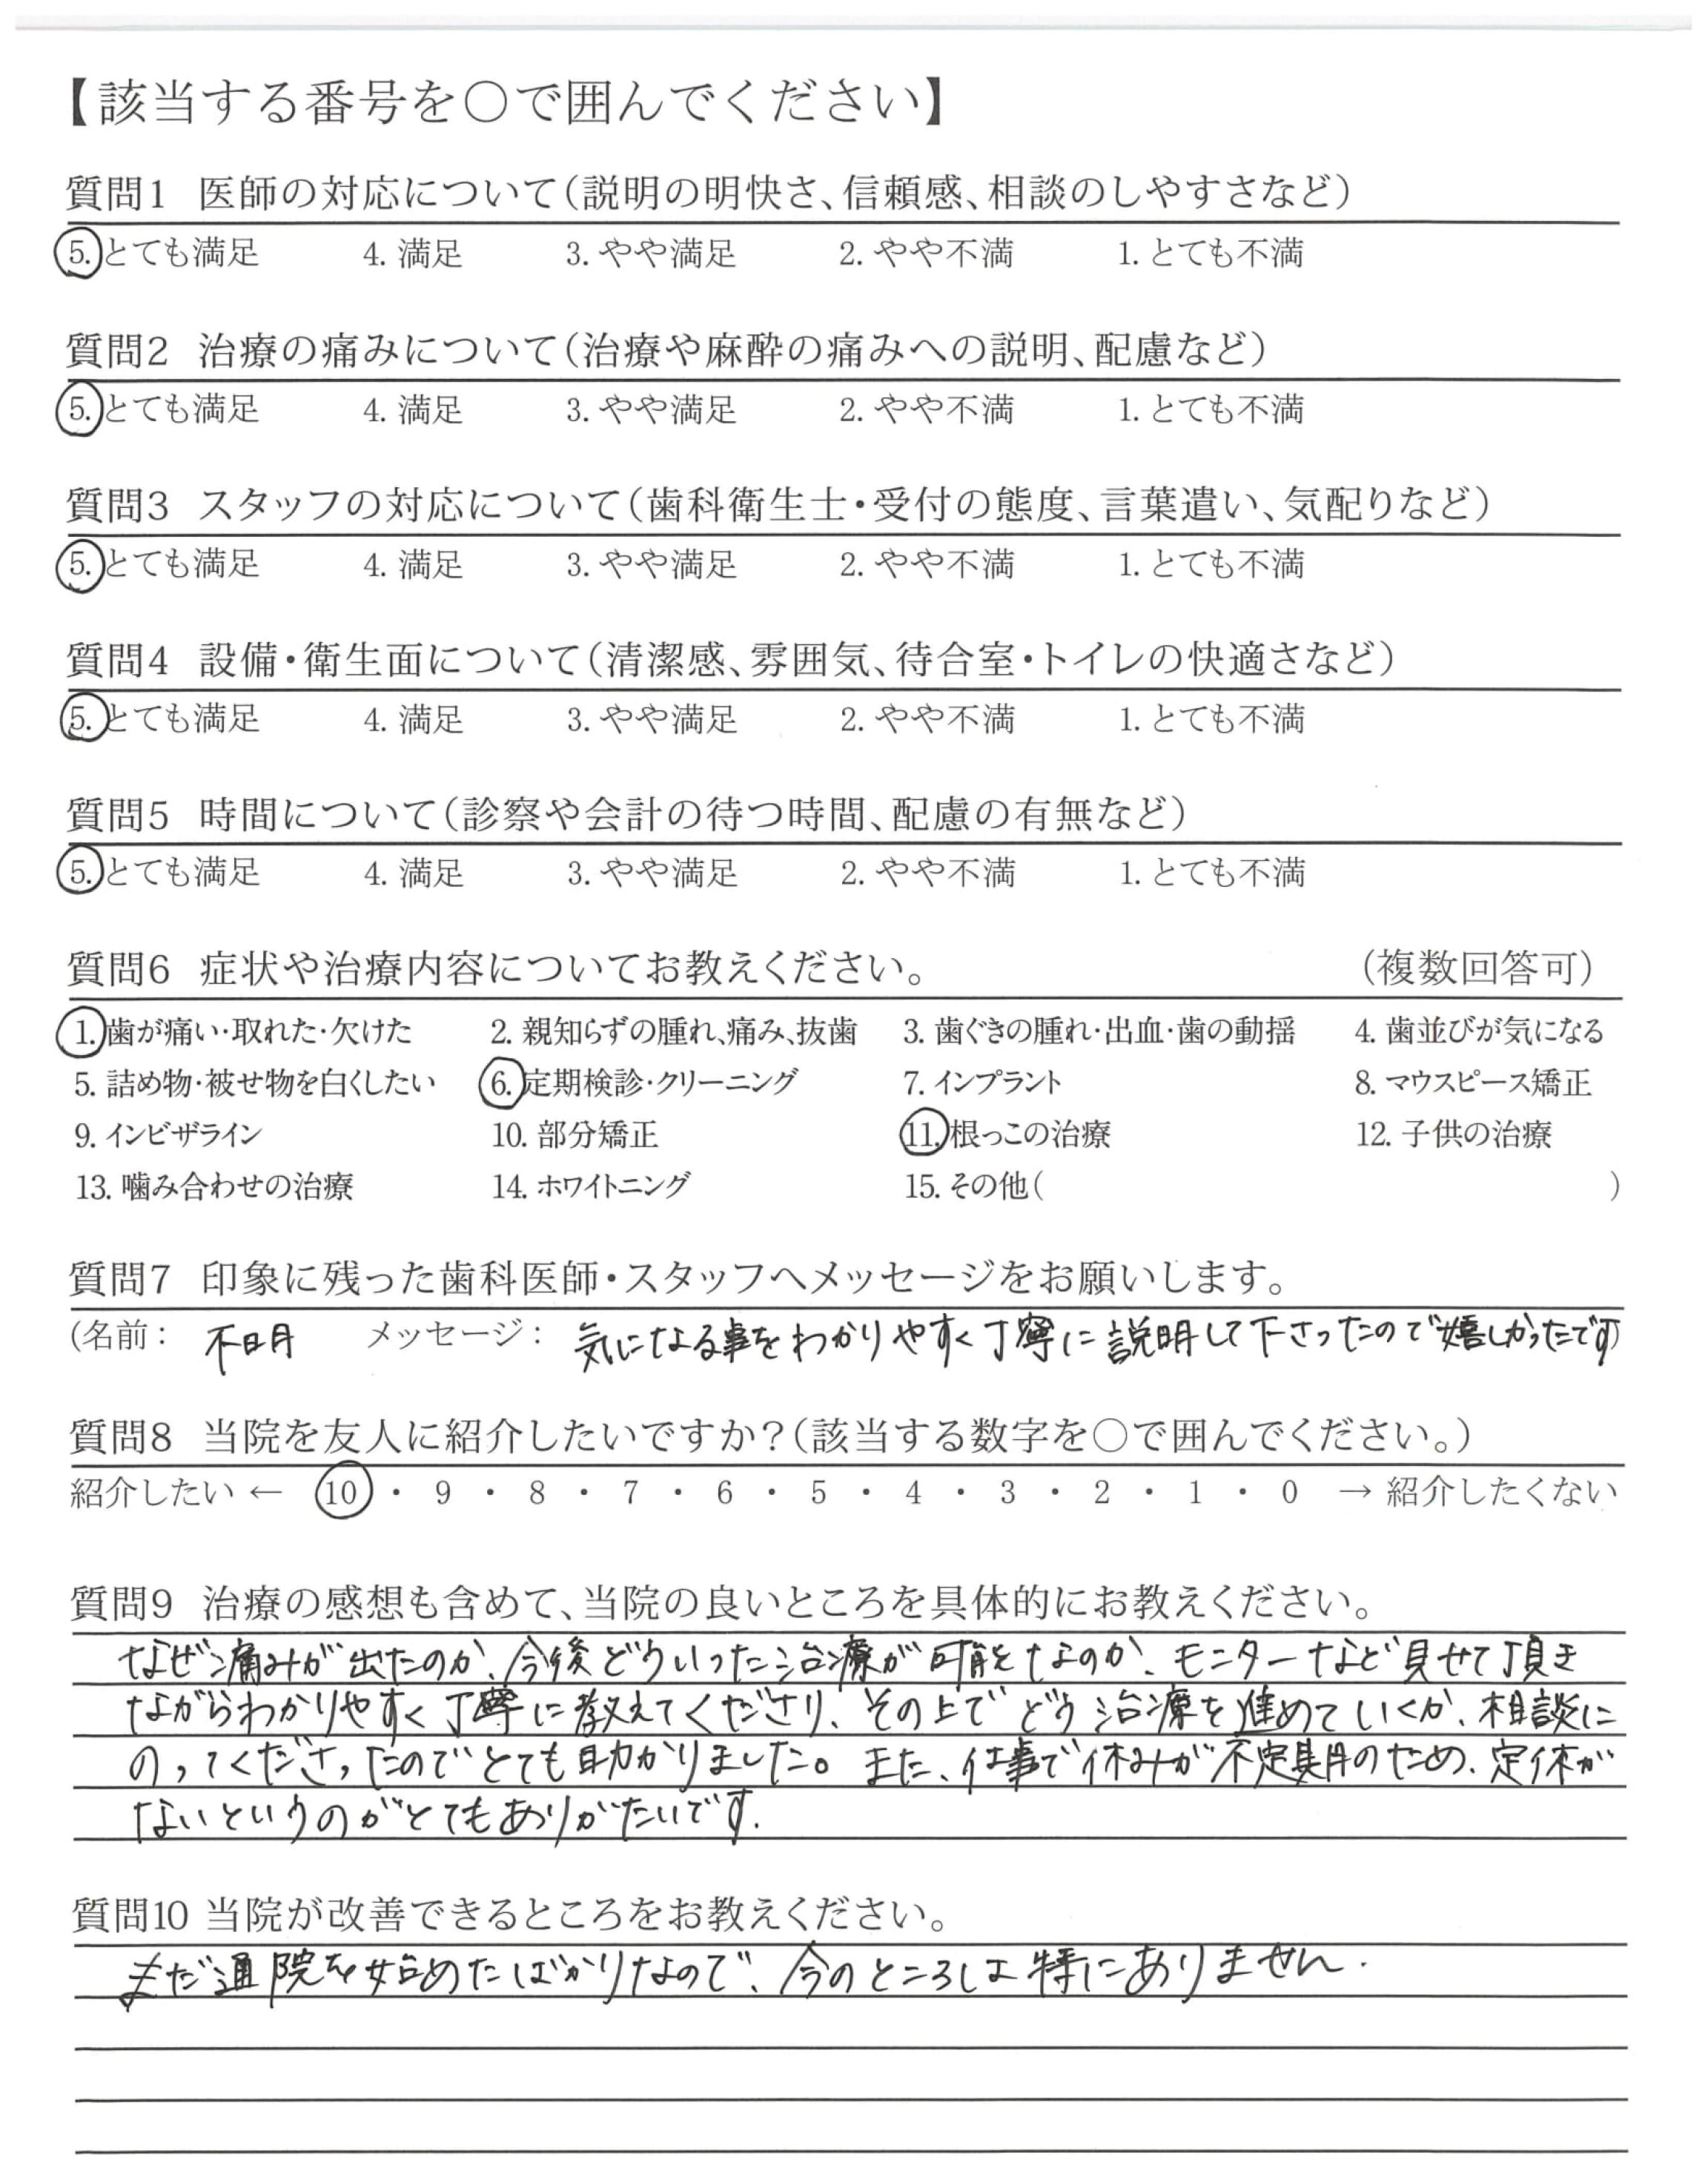 【該当する番号を○で囲んでください】
質問1 医師の対応について(説明の明快さ、信頼感、相談のしやすさなど)
5. とても満足 4. 満足 3. やや満足 2. やや不満 1. とても不満
質問2 治療の痛みについて(治療や麻酔の痛みへの説明、配慮など)
5. とても満足 4. 満足 3. やや満足 2. やや不満 1. とても不満
質問3 スタッフの対応について(歯科衛生士・受付の態度、言葉遣い、気配りなど)
5. とても満足 4. 満足 3. やや満足 2. やや不満 1. とても不満
質問4 設備・衛生面について(清潔感、雰囲気、待合室・トイレの快適さなど)
5. とても満足 4. 満足 3. やや満足 2. やや不満 1. とても不満
質問5 時間について(診察や会計の待つ時間、配慮の有無など)
5. とても満足 4. 満足 3. やや満足 2. やや不満 1. とても不満
質問6 症状や治療内容についてお教えください。 (複数回答可)
1. 歯が痛い・取れた・欠けた 2. 親知らずの腫れ、痛み、抜歯 3. 歯ぐきの腫れ・出血・歯の動揺 4. 歯並びが気になる
5. 詰め物・被せ物を白くしたい 6. 定期検診・クリーニング 7. インプラント 8. マウスピース矯正
9. インビザライン 10. 部分矯正 11. 根っこの治療 12. 子供の治療
13. 噛み合わせの治療 14. ホワイトニング 15. その他( )
質問7 印象に残った歯科医師・スタッフへメッセージをお願いします。
(名前: 不明 メッセージ: 気になる事をわかりやすく丁寧に説明して下さったので嬉しかったです)
質問8 当院を友人に紹介したいですか?(該当する数字を○で囲んでください。)
紹介したい ← 10 ・ 9 ・ 8 ・ 7 ・ 6 ・ 5 ・ 4 ・ 3 ・ 2 ・ 1 ・ 0 → 紹介したくない
質問9 治療の感想も含めて、当院の良いところを具体的にお教えください。
なぜ痛みが出たのか、今後どういった治療が可能なのか、モニターなど見せて頂き
ながらわかりやすく丁寧に教えてくださり、その上でどう治療を進めていくか、相談に
のってくださったのでとても助かりました。また、仕事で休みが不定期のため、定休が
ないというのがとてもありがたいです.
質問10 当院が改善できるところをお教えください。
まだ通院を始めたばかりなので、今のところは特にありません.